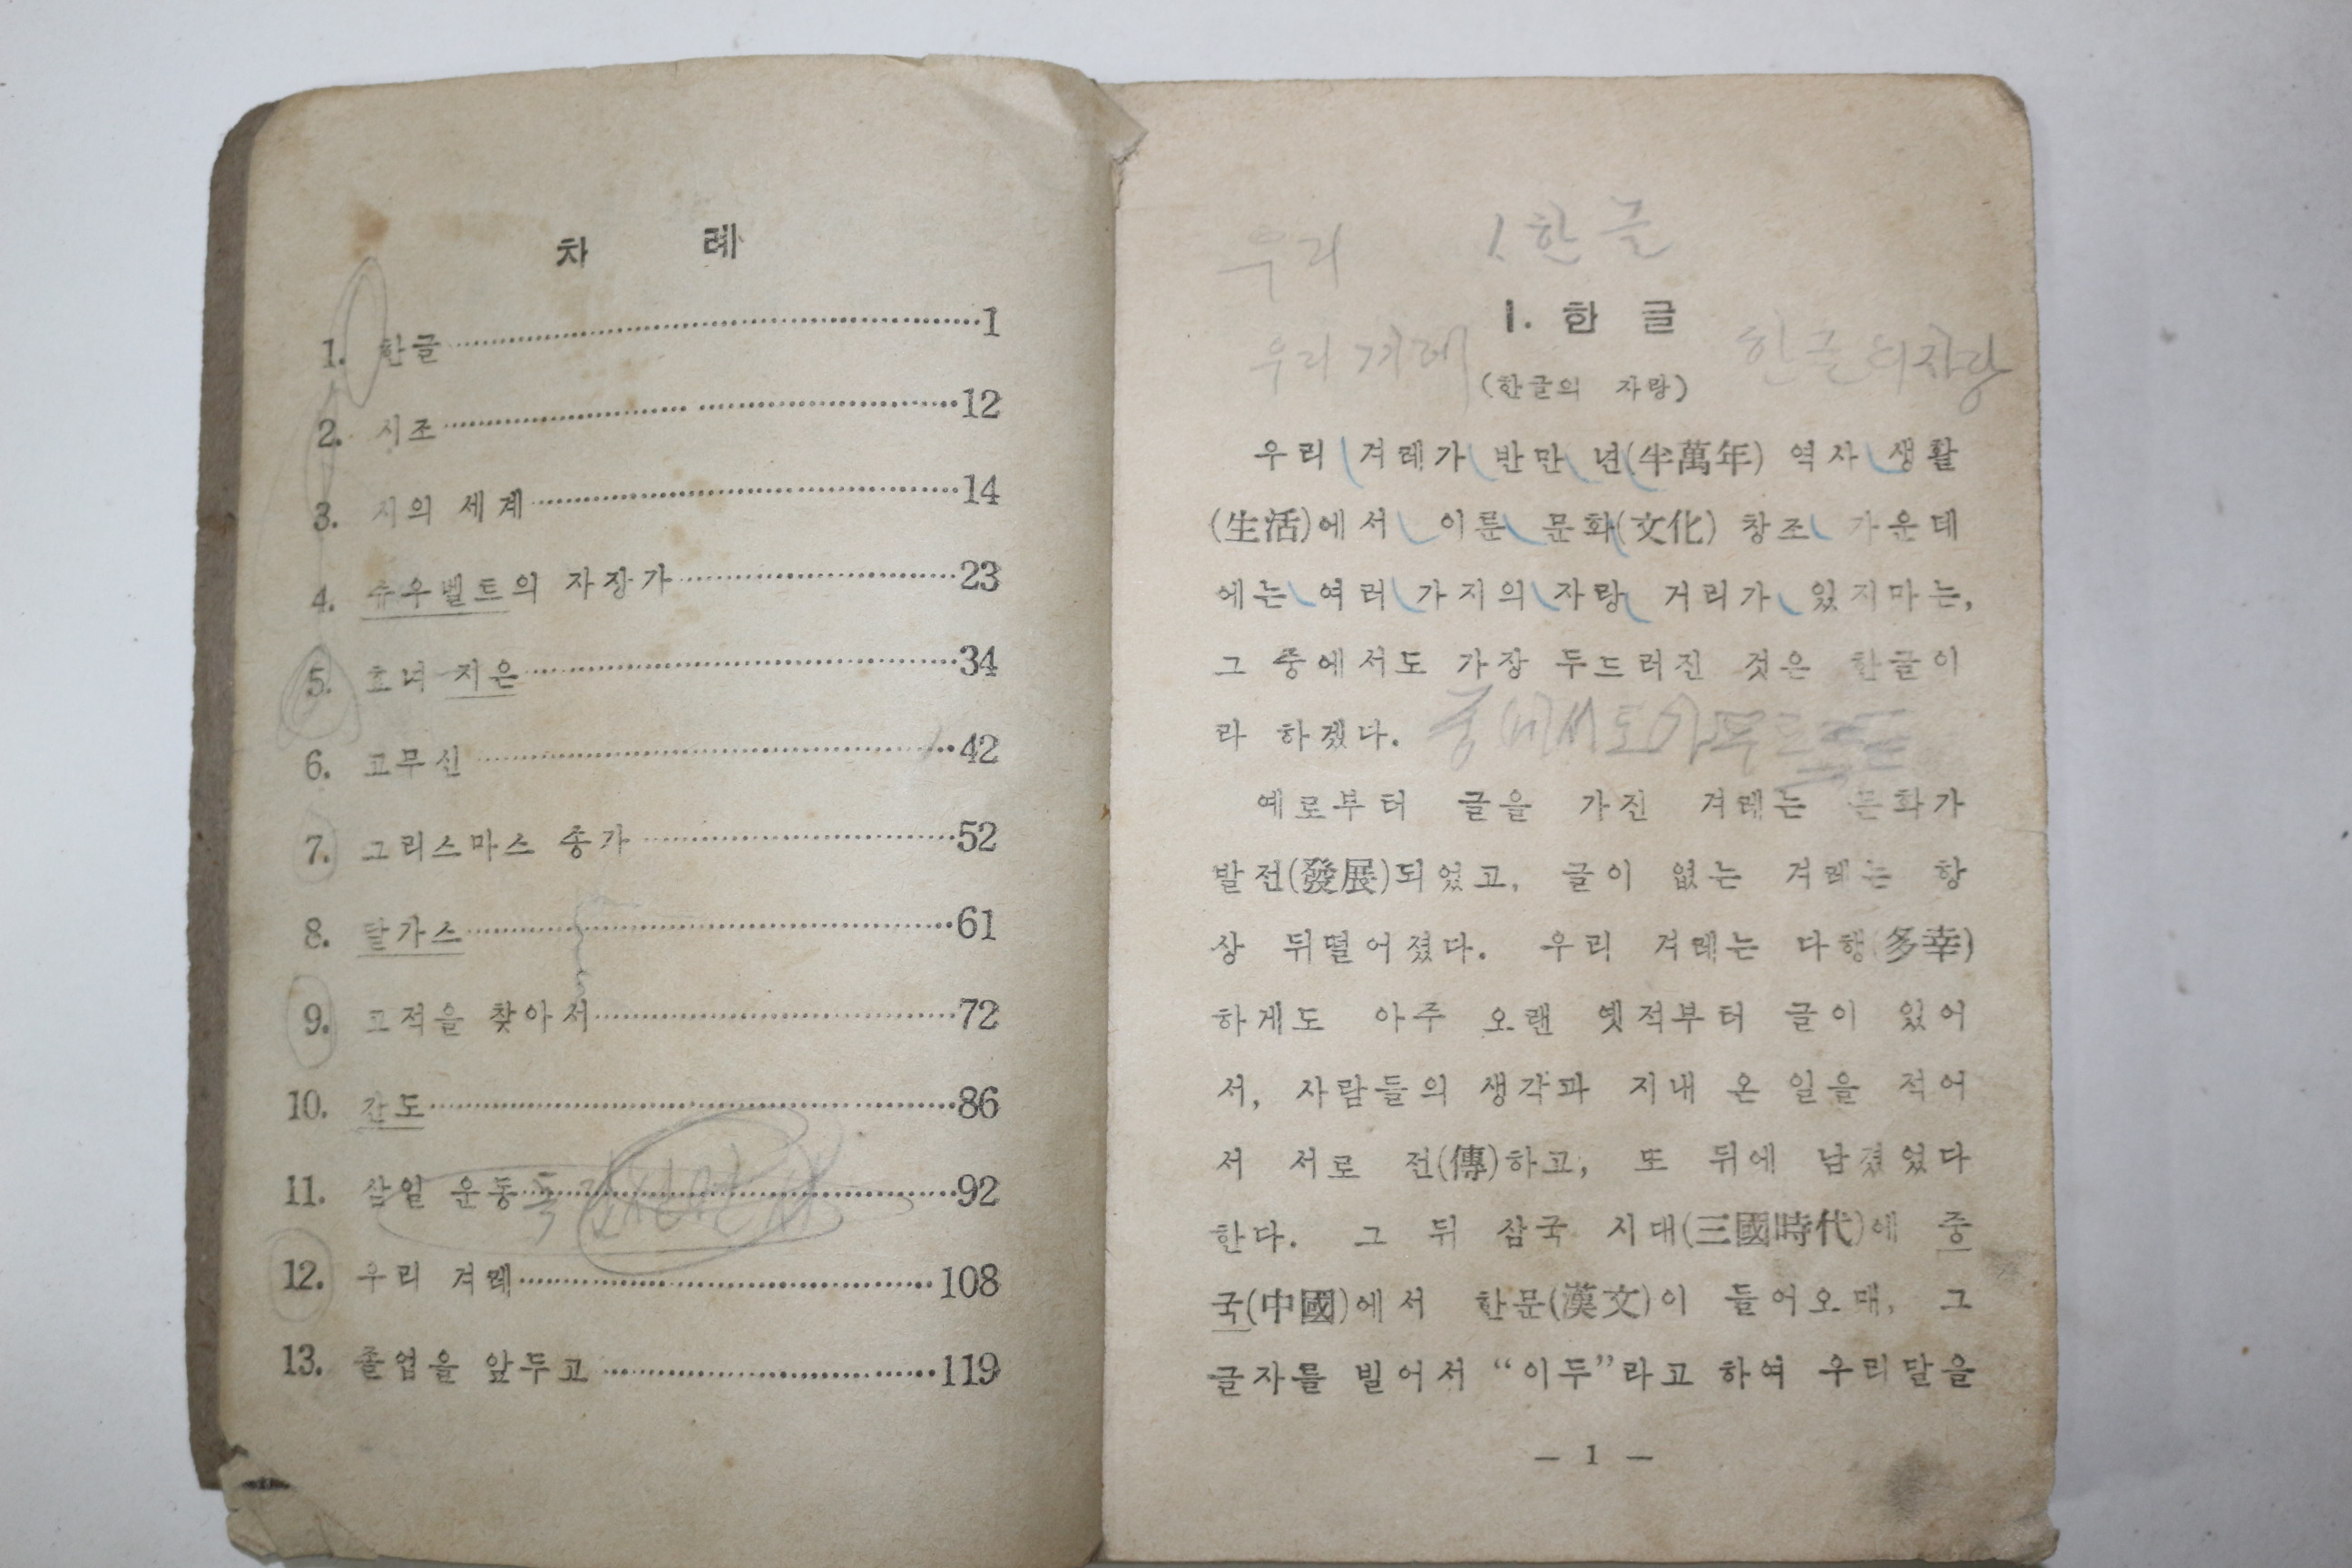 차 례
1. 한글 1
2. 시조 12
3. 지의 세계 14
4. 슈우벨트의 자장가 23
5. 효녀 지은 34
6. 고무신 42
7. 그리스마스 송가 52
8. 달가스 61
9. 고적을 찾아서 72
10. 간도 86
11. 삼일 운동 92
12. 우리 겨레 108
13. 졸업을 앞두고 119
우리 1 한글
1. 한 글
우리 겨레 한글의 자랑
(한글의 자랑)
우리 겨레가 반만 년(半萬年) 역사 생활
(生活)에서 이룬 문화(文化) 창조 가운데
에는 여러 가지의 자랑 거리가 있지마는,
그 중에서도 가장 두드러진 것은 한글이
라 하겠다.
중에서도
예로부터 글을 가진 겨레는 문화가
발전(發展)되었고, 글이 없는 겨레는 항
상 뒤떨어졌다. 우리 겨레는 다행(多幸)
하게도 아주 오랜 옛적부터 글이 있어
서, 사람들의 생각과 지내 온 일을 적어
서 서로 전(傳)하고, 또 뒤에 남겼었다
한다. 그 뒤 삼국 시대(三國時代)에 중
국(中國)에서 한문(漢文)이 들어오매, 그
글자를 빌어서 “이두”라고 하여 우리말을
— 1 —